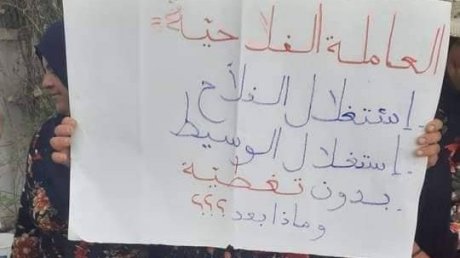 العاملة الفلاحيّة =
. إستغلال الفلاّح
. إستغلال الوسيط
. بدون تغطية
وماذا بعد ؟؟؟